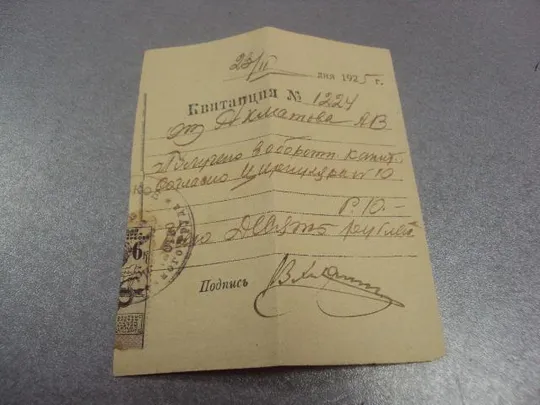 23/II дня 1925 г.
Квитанция № 1224
от Ахматова А В
Получено в оборотн. капит.
согласно циркуляра № 10
Р. 10.–
рублей
Подпись